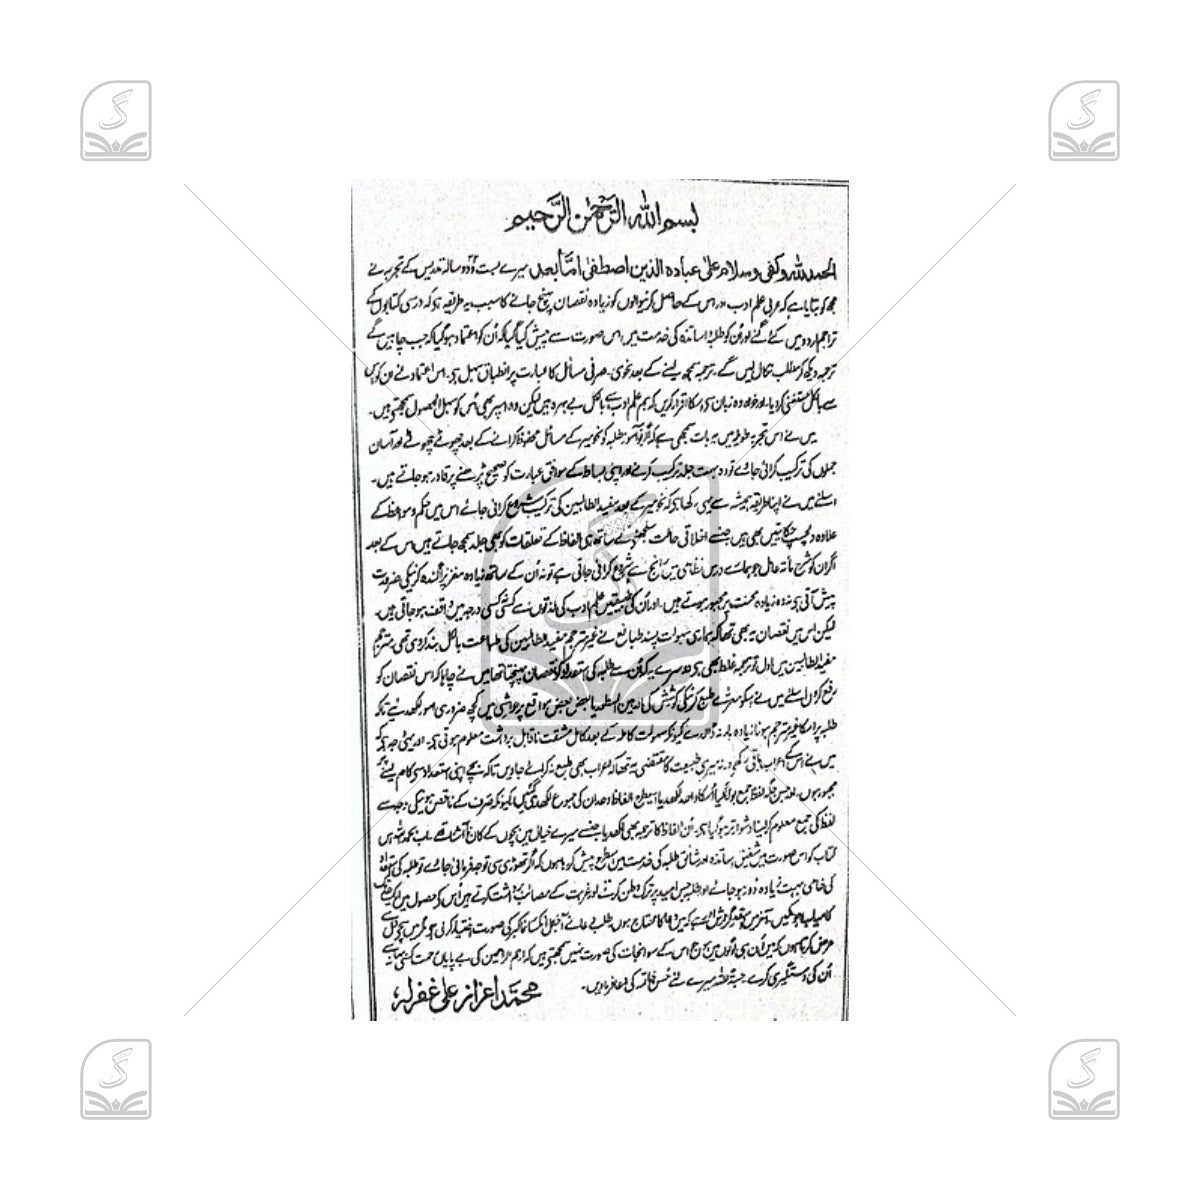 بسم اللہ الرحمٰن الرحیم
الحمد للہ وکفی وسلام علی عبادہ الذین اصطفی اما بعد میرے بست و دو سالہ تدریس کے تجربہ نے
مجھ کو بتایا ہے کہ عربی علم ادب اور اس کے حاصل کرنیوالوں کو زیادہ نقصان پہنچ جانے کا سبب یہ طریقہ ہوا کہ درسی کتابوں کے
تراجم اردو میں کئے گئے اور ان کو طلبہ و اساتذہ کی خدمت میں اس صورت سے پیش کیا گیا کہ اُن کو اعتماد ہو گیا کہ جب چاہیں گے
ترجمہ دیکھ کر مطلب نکال لیں گے، ترجمہ سمجھ لینے کے بعد نحوی۔ صرفی مسائل کا عبارت پر انطباق سہل ہے۔ اس اعتماد نے ان کو
سے بالکل مستغنی کر دیا۔ اور خود وہ زبان سے اسکا اقرار کریں کہ ہم علم ادب سے بالکل بے بہرہ ہیں لیکن وہ اسپر بھی اُس کو سہل الحصول سمجھتے ہیں۔
میں نے اس تجربہ میں یہ بات سمجھی ہے کہ اگر نو آموز طلبہ کو نحو میر کے مسائل محفوظ کرانے کے بعد چھوٹے چھوٹے اور آسان
جملوں کی ترکیب کرائی جاوے تو وہ بہت جلد ترکیب کرنے اور اپنی بساط کے موافق عبارت کو صحیح پڑھنے پر قادر ہو جاتے ہیں۔
اسلئے میں نے اپنا طریقہ ہمیشہ سے یہی رکھا ہے کہ نحو میر کے بعد مفید الطالبین کی ترکیب شروع کرائی جائے اس میں حکم و مواعظ کے
علاوہ دلچسپ حکایتیں بھی ہیں جنسے اخلاقی حالت سلجھنے کے ساتھ ہی الفاظ کے تعلقات کو بھی جلد سمجھ جاتے ہیں اس کے بعد
اگر ان کو شرح مائۃ عامل جو ہمارے درس نظامی میں رائج ہے شروع کرائی جاتی ہے تو نہ اُن کے ساتھ زیادہ مغز پراگندہ کرنیکی ضرورت
پیش آتی ہے نہ وہ زیادہ محنت پر مجبور ہوتے ہیں۔ اور اُن کی طبیعتیں علم ادب کی لذتوں سے کسی کسی درجہ میں واقف ہو جاتی ہیں۔
لیکن اس میں نقصان یہ بھی تھا کہ ہماری سہولت پسند طبائع نے غیر مترجم مفید الطالبین کی طباعت بالکل بند کر دی تھی مترجم
مفید الطالبین میں اول تو ترجمہ غلط بھی ہے دوسرے یہ کہ اُس سے طلبہ کی استعداد کو نقصان پہنچتا تھا میں نے چاہا کہ اس نقصان کو
رفع کروں اسلئے میں نے اسکو معرٰی طبع کرنیکی کوشش کی اور بین السطور یا بعض بعض مواقع پر حواشی میں کچھ ضروری امور لکھدیے تاکہ
طلبہ پر اسکا غیر مترجم ہونا زیادہ بار نہ ڈالے کیونکہ سہولت کاملہ کے بعد کامل مشقت ناقابل برداشت معلوم ہوتی ہے۔ اور یہی وجہ ہے کہ
میں نے اس کے اعراب باقی رکھے ورنہ میری طبیعت کا مقتضی یہ تھا کہ اعراب بھی طبع نہ کرائے جاویں تاکہ بچے اپنی استعداد سے کام لینے پر
مجبور ہوں۔ اور جس جگہ لفظ جمع بولا گیا اُسکا واحد لکھدیا اسیطرح الفاظ وحدان کی جموع لکھدی گئیں کیونکہ صرف کے ناقص ہونیکی وجہ سے
لفظ کی جمع معلوم کر لینا دشوار تر ہو گیا ہے۔ اُن الفاظ کا ترجمہ بھی لکھدیا جنسے میرے خیال میں بچوں کے کان آشنا نہ تھے۔ اب بحمد اللہ میں
کتاب کو اس صورت میں شفیق اساتذہ اور شائق طلبہ کی خدمت میں اسطرح پیش کر رہا ہوں کہ اگر تھوڑی سی توجہ فرمائی جاوے تو طلبہ کی استعداد
کی خامی بہت زیادہ دور ہو جائے اور طلبہ جس امید پر ترک وطن کرتے اور غربت کے مصائب برداشت کرتے ہیں اُس کے حصول میں ایک حد تک
کامیاب ہو سکیں۔ آخر میں اسقدر گزارش ہے کہ میں دعا کا محتاج ہوں، طلب دعا نے آجکل انکسار نما کبر کی صورت اختیار کر لی ہے مگر میں سچے دل سے
عرض کرتا ہوں کہ میں اُن ہی لوگوں میں ہوں جن کے سوا نجات کی صورت نہیں سمجھتے ہیں کہ ارحم الراحمین کی بے پایاں رحمت
اُن کی دستگیری کرے۔ حسبۃً للہ میرے لئے حسن خاتمہ کی دعا فرماویں۔
محمد اعزاز علی غفرلہ